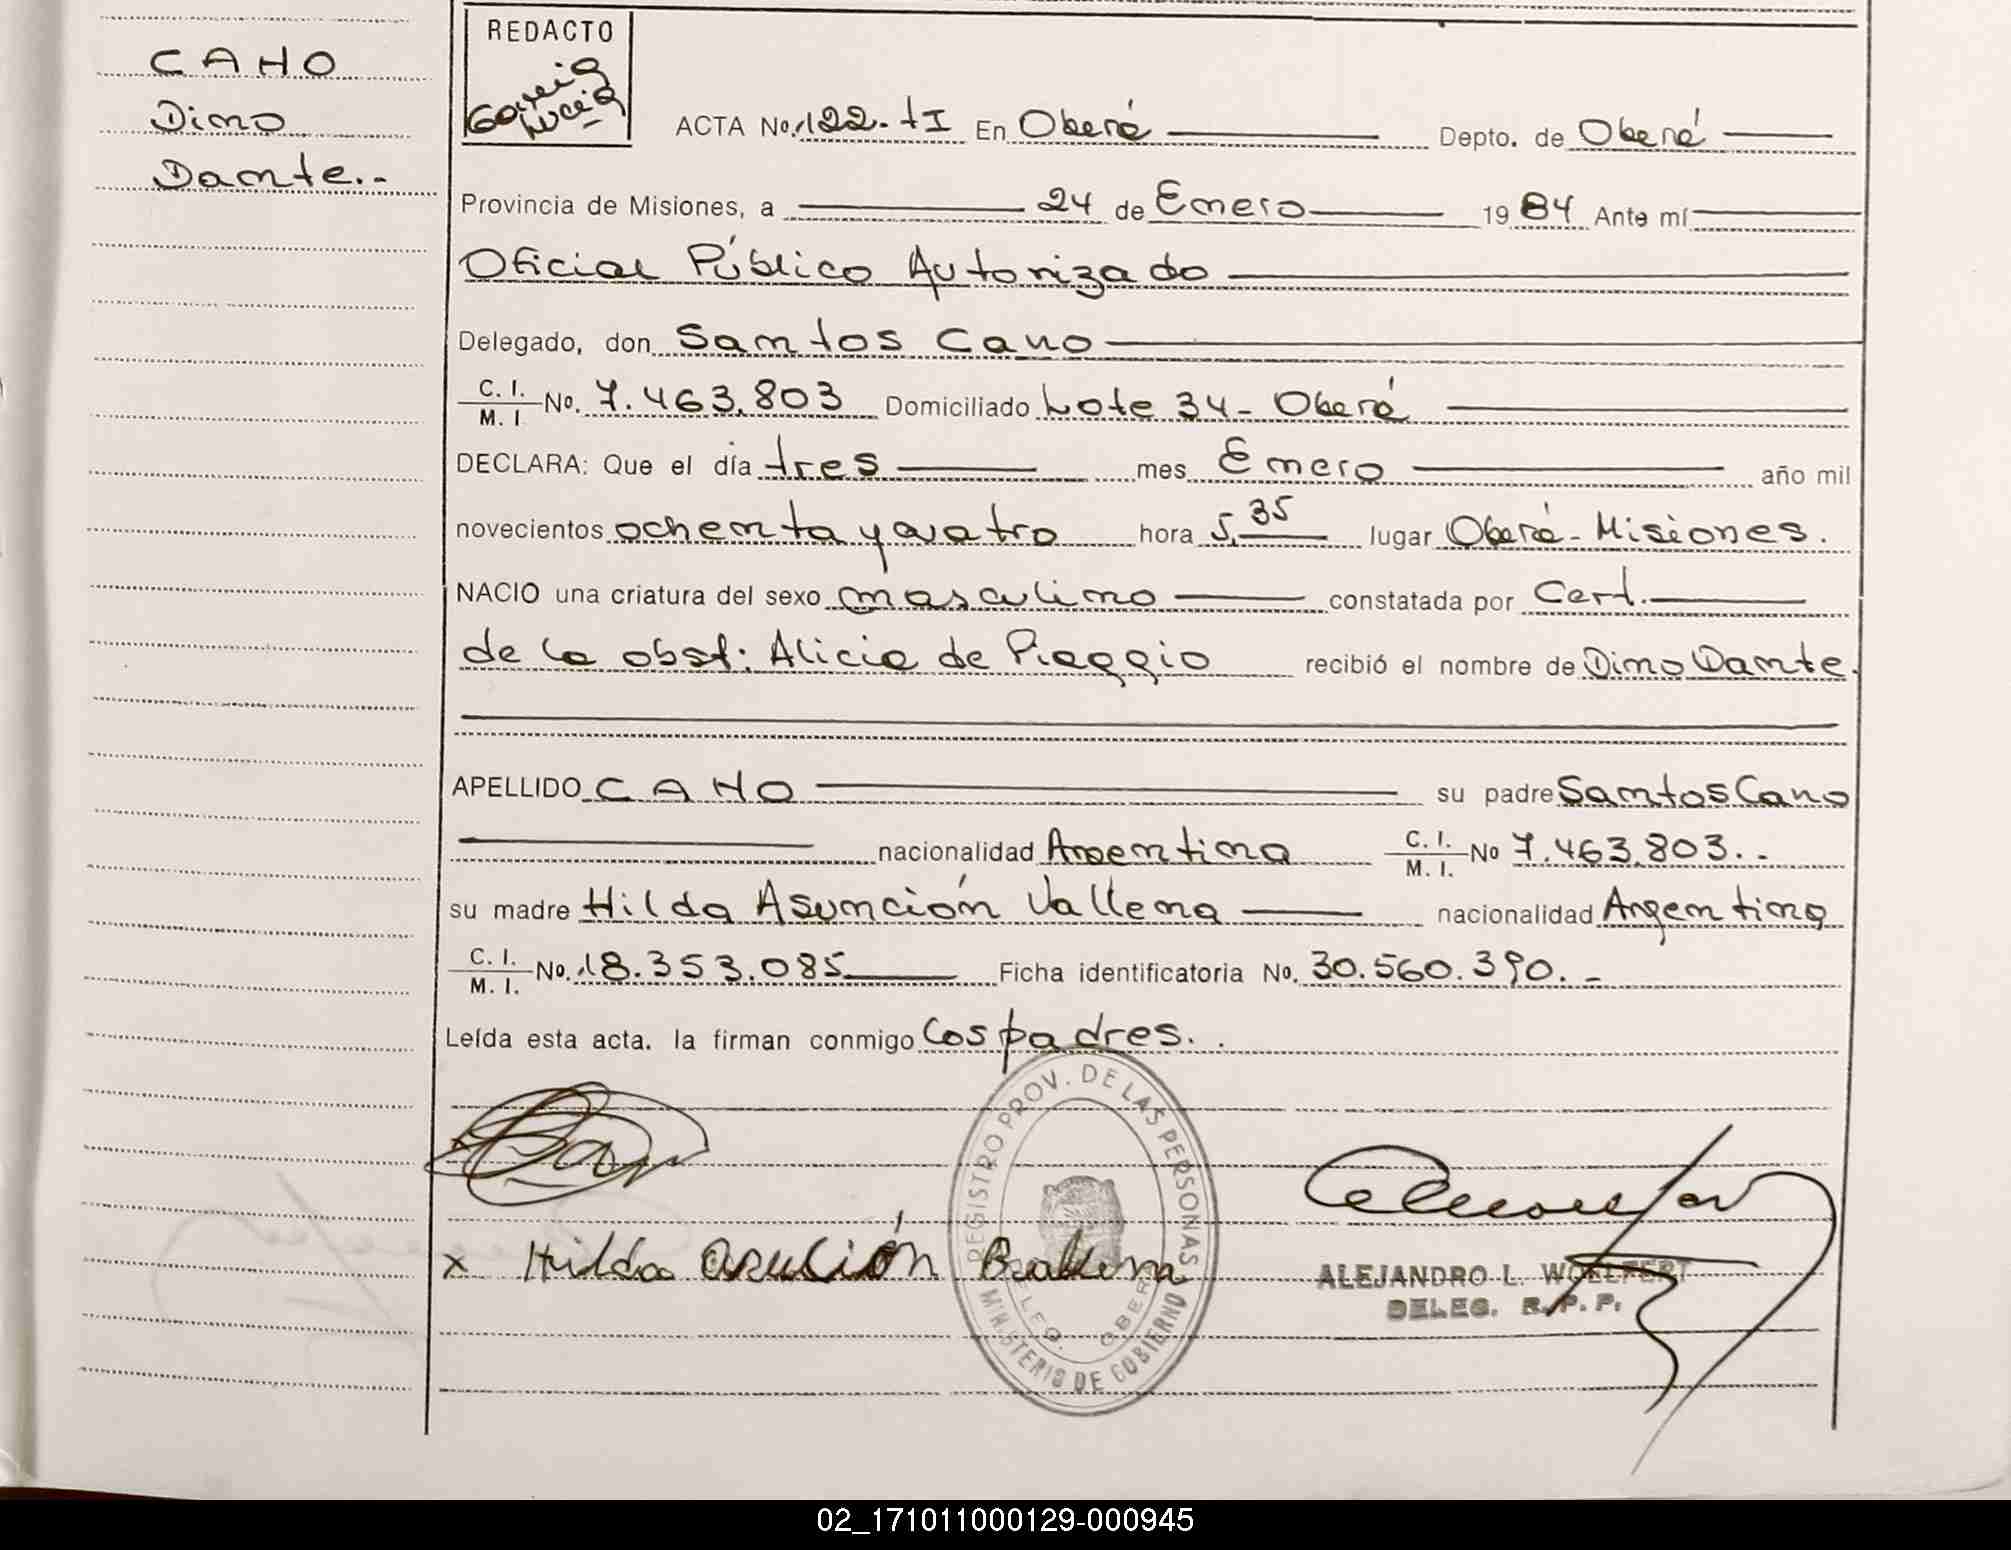 CANO
Dino
Dante.-
REDACTO
García
Lucía
ACTA No. 122-tI En Oberá Depto. de Oberá
Provincia de Misiones, a 24 de Enero 1984 Ante mí
Oficial Público Autorizado
Delegado, don Santos Cano
C. I. / M. I No. 7.463.803 Domiciliado Lote 34- Oberá
DECLARA: Que el día tres mes Enero año mil
novecientos ochenta y cuatro hora 5.35 lugar Oberá-Misiones.
NACIO una criatura del sexo masculino constatada por Cert.
de la obst: Alicia de Piaggio recibió el nombre de Dino Dante.
APELLIDO CANO su padre Santos Cano
nacionalidad Argentina C. I. / M. I. No 7.463.803.-
su madre Hilda Asunción Vallena nacionalidad Argentina
C. I. / M. I. No. 18.353.085 Ficha identificatoria No. 30.560.390.-
Leída esta acta. la firman conmigo los padres..
REGISTRO PROV. DE LAS PERSONAS
MINISTERIO DE GOBIERNO
DELEG. OBERA
x Hilda asulión Ballena
ALEJANDRO L. WOELFERT
DELEG. R. P. P.
02_171011000129-000945